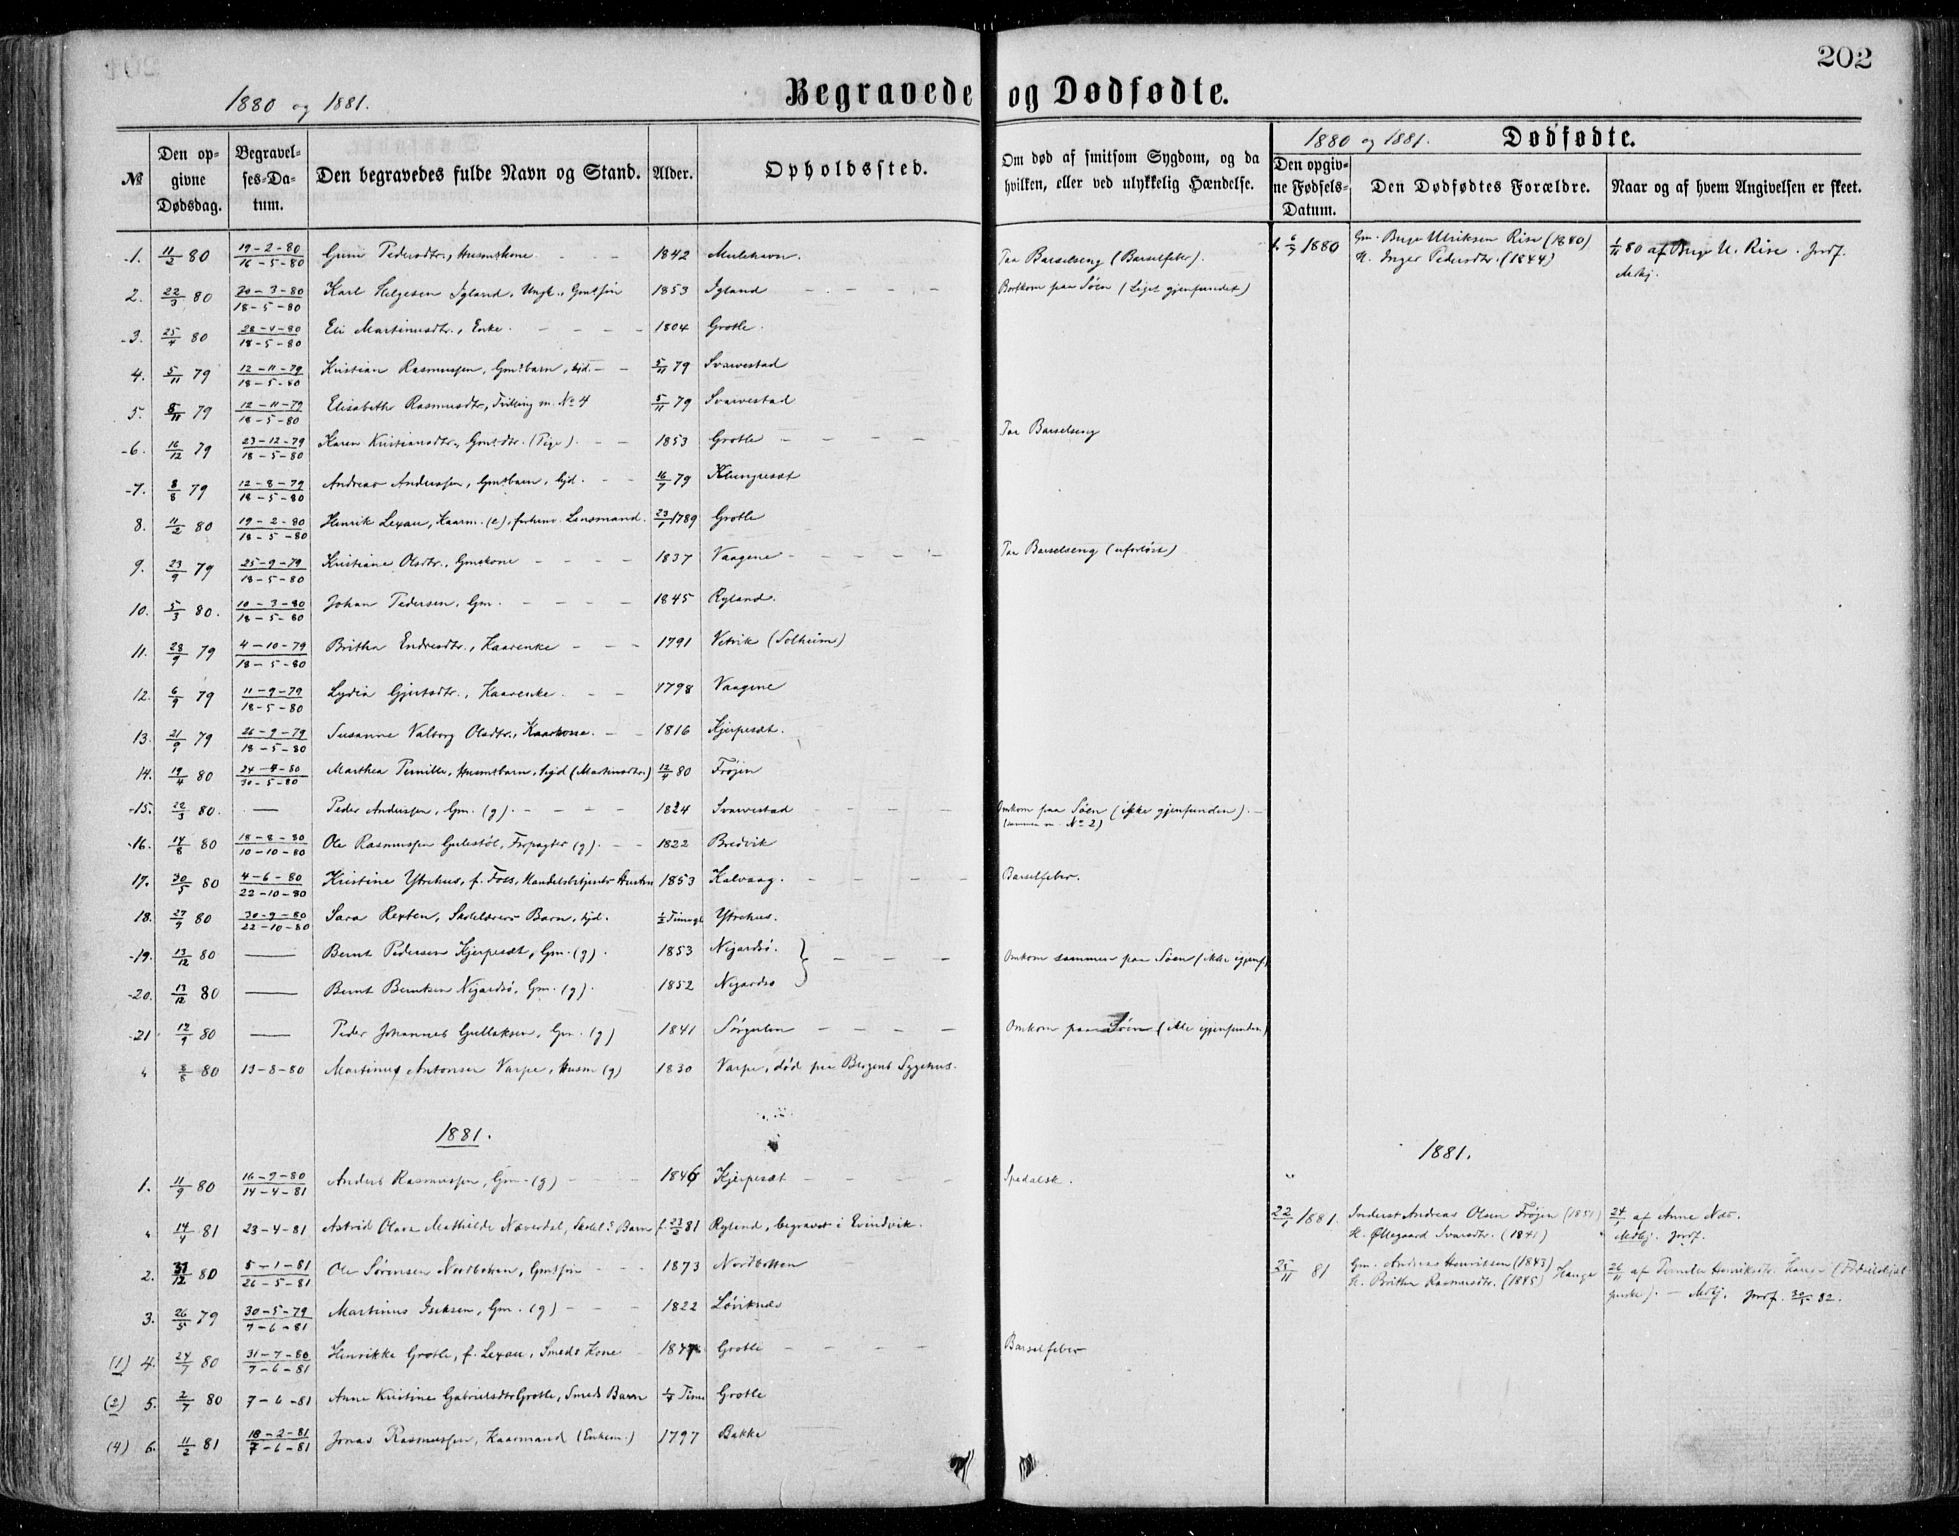 202
1880 og 1881.
Begravede og Dødfødte.
1880 og 1881. Dødfødte.
№
Den opgivne Dødsdag.
Begravelses-Datum.
Den begravedes fulde Navn og Stand.
Alder.
Opholdssted.
Om død af smitsom Sygdom, og da hvilken, eller ved ulykkelig Hændelse.
Den opgivne Fødsels-Datum.
Den Dødfødtes Forældre.
Naar og af hvem Angivelsen er skeet.
1. 11/2 80 19-2-80 / 16-5-80 Pedersdtr., Husmskone 1842 Paa Barselseng (Barselfeber).
6/7 1880 Gm. Ulriksen Rise (1840) 1/11 80 af U. Rise. Jordf.
H. Inger Pedersdtr. (1844) Mdkj.
2. 22/3 80 30-3-80 / 18-5-80 Karl Helgesen Igland, Ungk., Gmsøn 1853 Igland Bortkom paa Søen (Liget gjenfundet)
3. 25/4 80 28-4-80 / 18-5-80 Eli Martinusdtr., Enke 1804 Grotle.
4. 5/11 79 12-11-79 / 18-5-80 Kristian Rasmussen, Gms barn, hjd. 5/11 79 Svarvestad
5. 8/11 79 12-11-79 / 18-5-80 Elisabeth Rasmusdtr., Tvilling m. No 4 5/11 79 Svarvestad
6. 16/12 79 23-12-79 / 18-5-80 Karen Kristiansdtr., Gms dtr. (Pige). 1853 Grotle Paa Barselseng
7. 8/8 79 12-8-79 / 18-5-80 Andreas Andersen, Gms barn, hjd. 16/7 79 Klungresæt
8. 11/2 80 19-2-80 / 18-5-80 Henrik Lexau, Kaarm. (e), forhenv. Lensmand. 23/1 1789 Grotle
9. 23/9 79 25-9-79 / 18-5-80 Kristiane Olsdtr., Gmskone 1837 Vaagene Paa Barselseng (uforløst)
10. 5/3 80. 10-3-80 / 18-5-80 Johan Pedersen, Gm. 1845 Ryland.
11. 28/9 79 4-10-79 / 18-5-80 Britha Endresdtr., Kaarenke 1791 Vetvik (Solheim)
12. 6/9 79 11-9-79 / 18-5-80 Lydia Gjertsdtr., Kaarenke. 1798 Vaagene
13. 21/9 79 26-9-79 / 18-5-80 Susanne Valborg Olsdtr., Kaarkone. 1816 Kjerpesæt.
14. 19/4 80 24-4-80 / 30-5-80 Marthea Pernille, Husmsbarn, hjd (Martinusdtr.) 12/4 80 Frøjen
15. 22/3 80. — Peder Andersen, Gm. (g). 1824 Svarvestad Omkom paa Søen (ikke gjenfunden).
(sammen m. No 2)
16. 14/8 80 18-8-80 / 10-10-80 Ole Rasmussen Gulestøl, Forpagter (g). 1822 Bredvik
17. 30/5 80 4-6-80 / 22-10-80 Kristine Ytrehus, f. Foss, Handelsbetjents Hustru 1853 Kalvaag. Barselfeber.
18. 27/9 80 30-9-80 / 22-10-80 Sara Rexten, Skolelærers Barn, hjd. Ytrehus.
19. 13/12 80 — Bernt Pedersen Kjerpesæt, Gm. (g). 1853 Nigardsö. Omkom sammen paa Søen (ikke igjenf)
20. 13/12 80 — Bernt Berntsen Nigardsö, Gm. (g). 1852 Nigardsö
21 12/9 80 — Peder Johannes Gullaksen, Gm. (g) 1841 Sørgulen Omkom paa Søen (ikke igjenfunden)
" 8/8 80 13-8-80 Martinus Antonsen Varpe, Husm (g) 1830 Varpe, død paa Bergens Sygehus.
1881.
1881.
1. 11/9 80 16-9-80 / 14-4-81 Anders Rasmussen, Gm. (g) 1846 Kjerpesæt Spedalsk.
" 14/4 81 23-4-81 Astrid Olava Mathilde Næverdal, Skolel.s Barn f. 23/3 81 Ryland, begravet i Evindvik.
22/1 1881. Inderst Andreas Olsen Frøjen (1851) 24/1 af Anne Næs.
H. Øllegaard Ivarsdtr. (1841) Mdkj. Jordf.
2. 31/12 80 5-1-81 / 26-5-81 Ole Sørensen Nordbotten, Gmsøn 1873 Nordbotten
25/11 81 Gm. Andreas Henriksen (1843) 26/11 af Pernille Henriksdtr. Hauge (Fødselshjælperske). — Mdkj. Jordf. 30/5 82.
H. Britha Rasmusdtr. (1845) Hauge
3. 26/5 79 30-5-79 / 7-6-81 Martinus Isaksen, Gm. (g) 1822 Løviknes
(1) 4. 24/7 80 31-7-80 / 7-6-81 Henrikke Grotle, f. Lexau, Smeds Kone Grotle Barselfeber
(2) 5. 2/7 80 7-6-81 Anne Kristine Gabrielsdtr Grotle, Smeds Barn Grotle
(4) 6. 11/2 81 18-2-81 / 7-6-81 Jonas Rasmussen, Kaarmand (Enkem.) 1797 Bakke